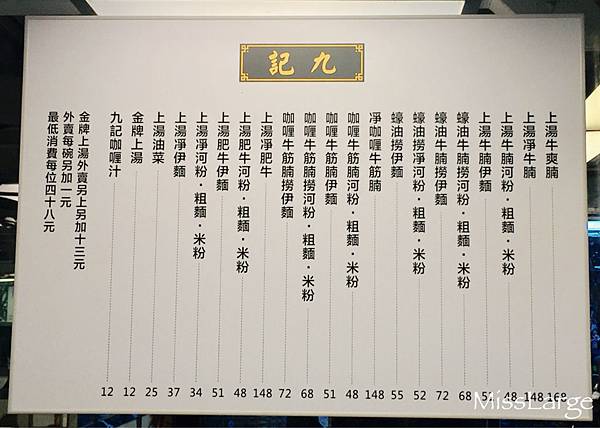 九記
上湯牛爽腩 168
上湯凈牛腩 148
上湯牛腩河粉．粗麵．米粉 48
上湯牛腩伊麵 51
蠔油牛腩撈河粉．粗麵．米粉 68
蠔油牛腩撈伊麵 72
蠔油撈凈河粉．粗麵．米粉 52
蠔油撈伊麵 55
凈咖喱牛筋腩 148
咖喱牛筋腩河粉．粗麵．米粉 48
咖喱牛筋腩伊麵 51
咖喱牛筋腩撈河粉．粗麵．米粉 68
咖喱牛筋腩撈伊麵 72
上湯凈肥牛 148
上湯肥牛河粉．粗麵．米粉 48
上湯肥牛伊麵 51
上湯凈河粉．粗麵．米粉 34
上湯凈伊麵 37
上湯油菜 25
金牌上湯 12
九記咖喱汁 12
金牌上湯外賣另上另加十三元
外賣每碗另加一元
最低消費每位四十八元
MissLarge